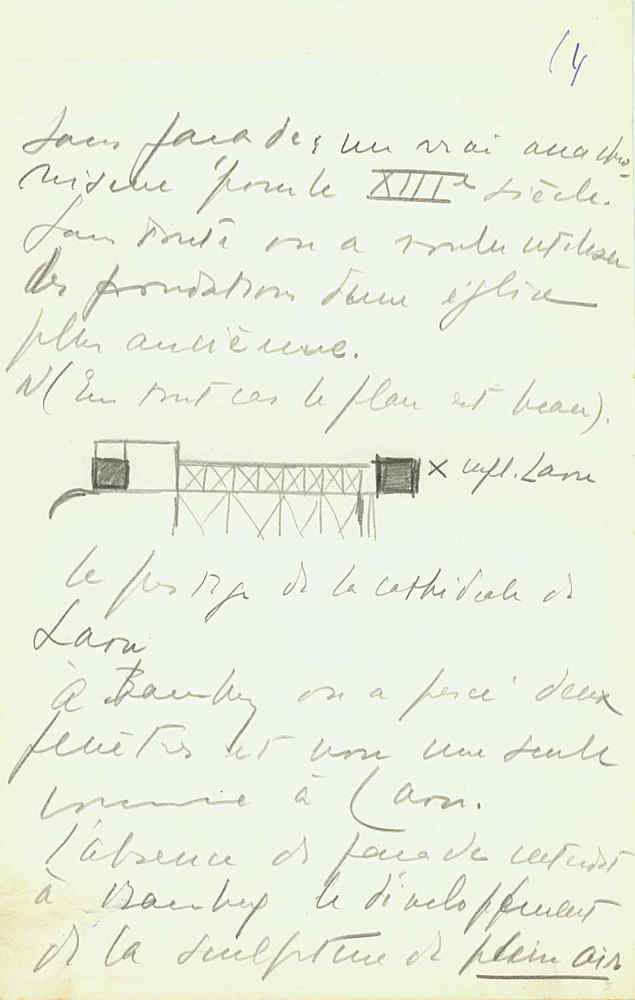 14
Sans façades, un vrai anachro-
nisme pour le XIIIe siècle.
Sans doute on a voulu utiliser
les fondations d'une église
plus ancienne.
N (En tout cas le plan est beau).
x infl. Laon
Le prestige de la cathédrale de
Laon
à Bamberg on a percé deux
fenêtres et non une seule
comme à Laon.
L'absence de façade interdit
à Bamberg le développement
de la sculpture de plein air